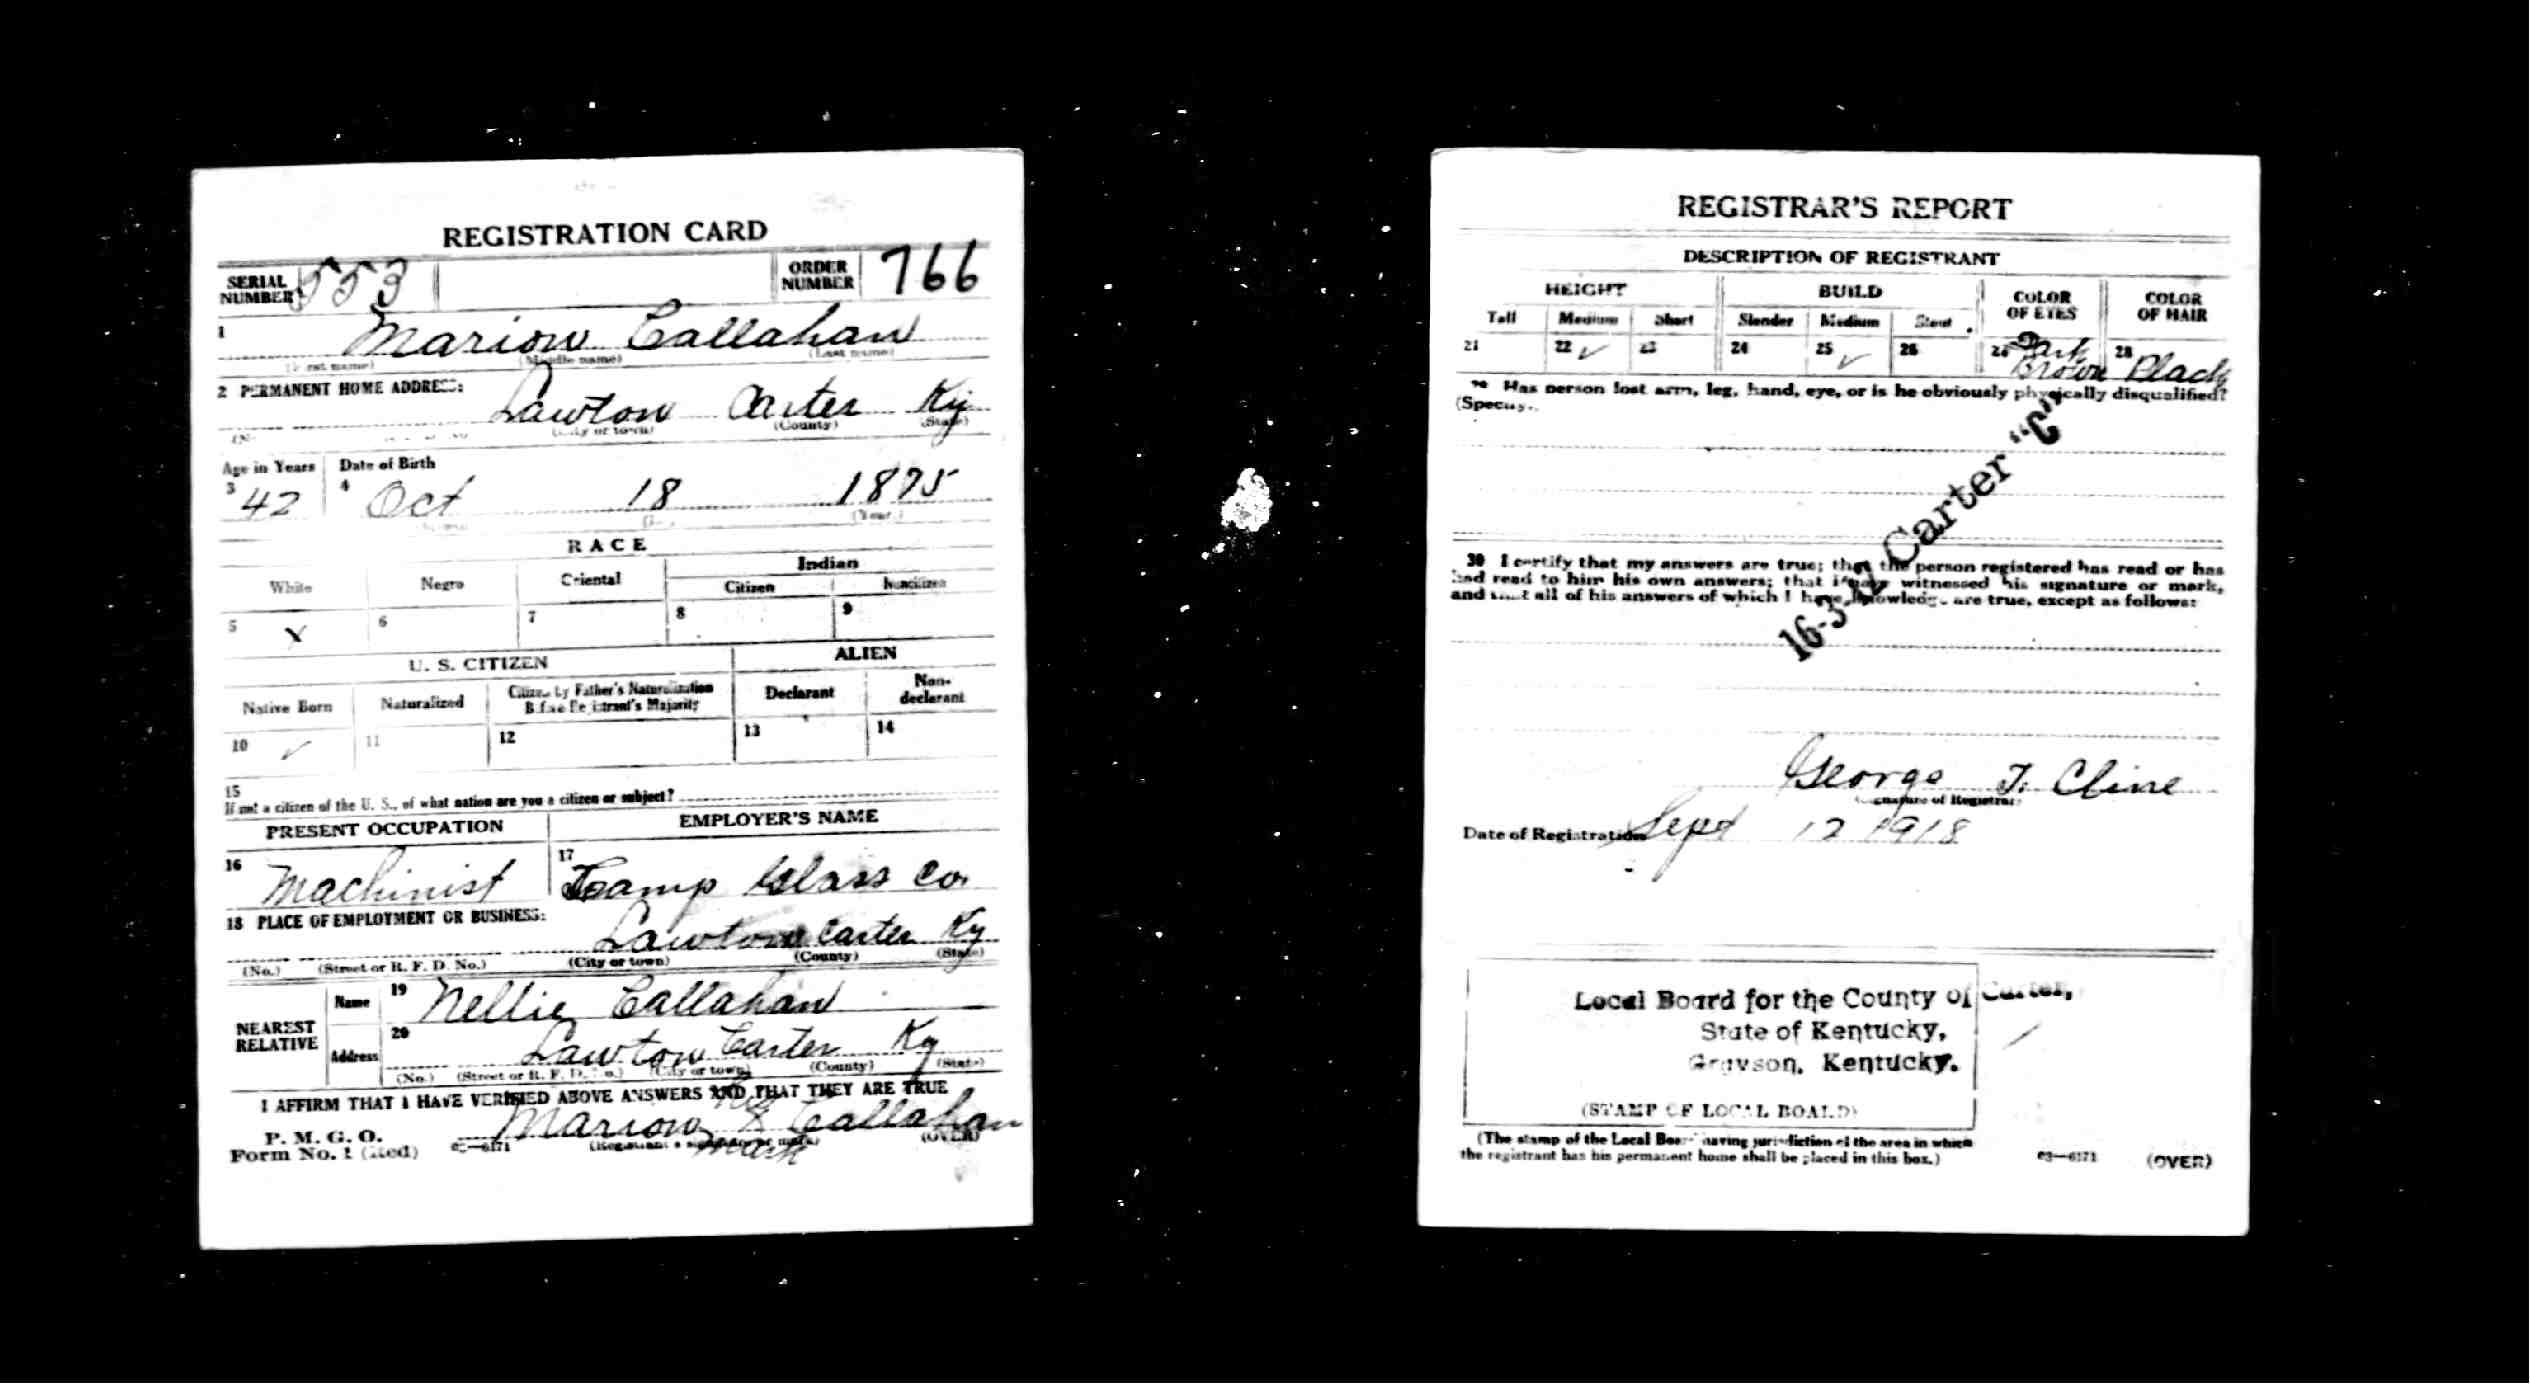 REGISTRATION CARD
SERIAL NUMBER 553 ORDER NUMBER 766
1 Marion Callahan
(First name) (Middle name) (Last name)
2 PERMANENT HOME ADDRESS:
Lawton Carter Ky
(City or town) (County) (State)
Age in Years Date of Birth
3 42 4 Oct 18 1875
(Year.)
RACE
White Negro Oriental Indian
Citizen Noncitizen
5 X 6 7 8 9
U. S. CITIZEN ALIEN
Native Born Naturalized Citizen by Father's Naturalization Before Registrant's Majority Declarant Non-declarant
10 ✓ 11 12 13 14
15
If not a citizen of the U. S., of what nation are you a citizen or subject?
PRESENT OCCUPATION EMPLOYER'S NAME
16 Machinist 17 Glass Co.
18 PLACE OF EMPLOYMENT OR BUSINESS:
Lawton Carter Ky
(No.) (Street or R. F. D. No.) (City or town) (County) (State)
NEAREST RELATIVE
Name 19 Nellie Callahan
Address 20 Lawton Carter Ky
(No.) (Street or R. F. D. No.) (City or town) (County) (State)
I AFFIRM THAT I HAVE VERIFIED ABOVE ANSWERS AND THAT THEY ARE TRUE
his
Marion X Callahan
P. M. G. O.
Form No. 1 (Red) 03—6171 (Registrant's signature or mark) (OVER)
mark
REGISTRAR'S REPORT
DESCRIPTION OF REGISTRANT
HEIGHT BUILD COLOR OF EYES COLOR OF HAIR
Tall Medium Short Slender Medium Stout
21 22 ✓ 23 24 25 ✓ 26 Dark Brown 28 Black
29 Has person lost arm, leg, hand, eye, or is he obviously physically disqualified?
(Specify.
16-3-42 Carter "C"
30 I certify that my answers are true; that the person registered has read or has
had read to him his own answers; that I have witnessed his signature or mark,
and that all of his answers of which I have knowledge are true, except as follows:
George T. Cline
(Signature of Registrar)
Date of Registration Sept 12 1918
Local Board for the County of Carter,
State of Kentucky,
Grayson, Kentucky.
(STAMP OF LOCAL BOARD)
(The stamp of the Local Board having jurisdiction of the area in which
the registrant has his permanent home shall be placed in this box.)
03—6171 (OVER)